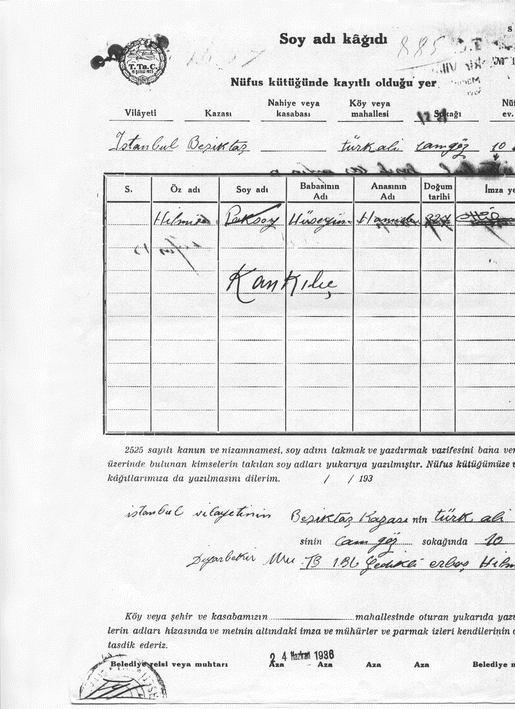 Soy adı kâğıdı
885
T.Tn.C.
Nüfus kütüğünde kayıtlı olduğu yer
Vilâyeti Kazası Nahiye veya kasabası Köy veya mahallesi Sokağı Nüf ev.
İstanbul Beşiktaş türk ali camgöz 10
S. Öz adı Soy adı Babasının Adı Anasının Adı Doğum tarihi İmza ye
Hilmi Peksoy Hüseyin Hamide 327
Kankılıç
2525 sayılı kanun ve nizamnamesi, soy adını takmak ve yazdırmak vazifesini bana ver
üzerinde bulunan kimselerin takılan soy adları yukarıya yazılmıştır. Nüfus kütüğümüze v
kâğıtlarımıza da yazılmasını dilerim. / / 193
istanbul vilayetinin Beşiktaş Kazası nin türk ali
sinin cam göz sokağında 10
Diyarbekir Gedikli erbaş Hilm
Köy veya şehir ve kasabamızın mahallesinde oturan yukarıda yazı
lerin adları hizasında ve metnin altındaki imza ve mühürler ve parmak izleri kendilerinin
tasdik ederiz.
2 4 Haziran 1936
Belediye reisi veya muhtarı Aza Aza Aza Aza Belediye m